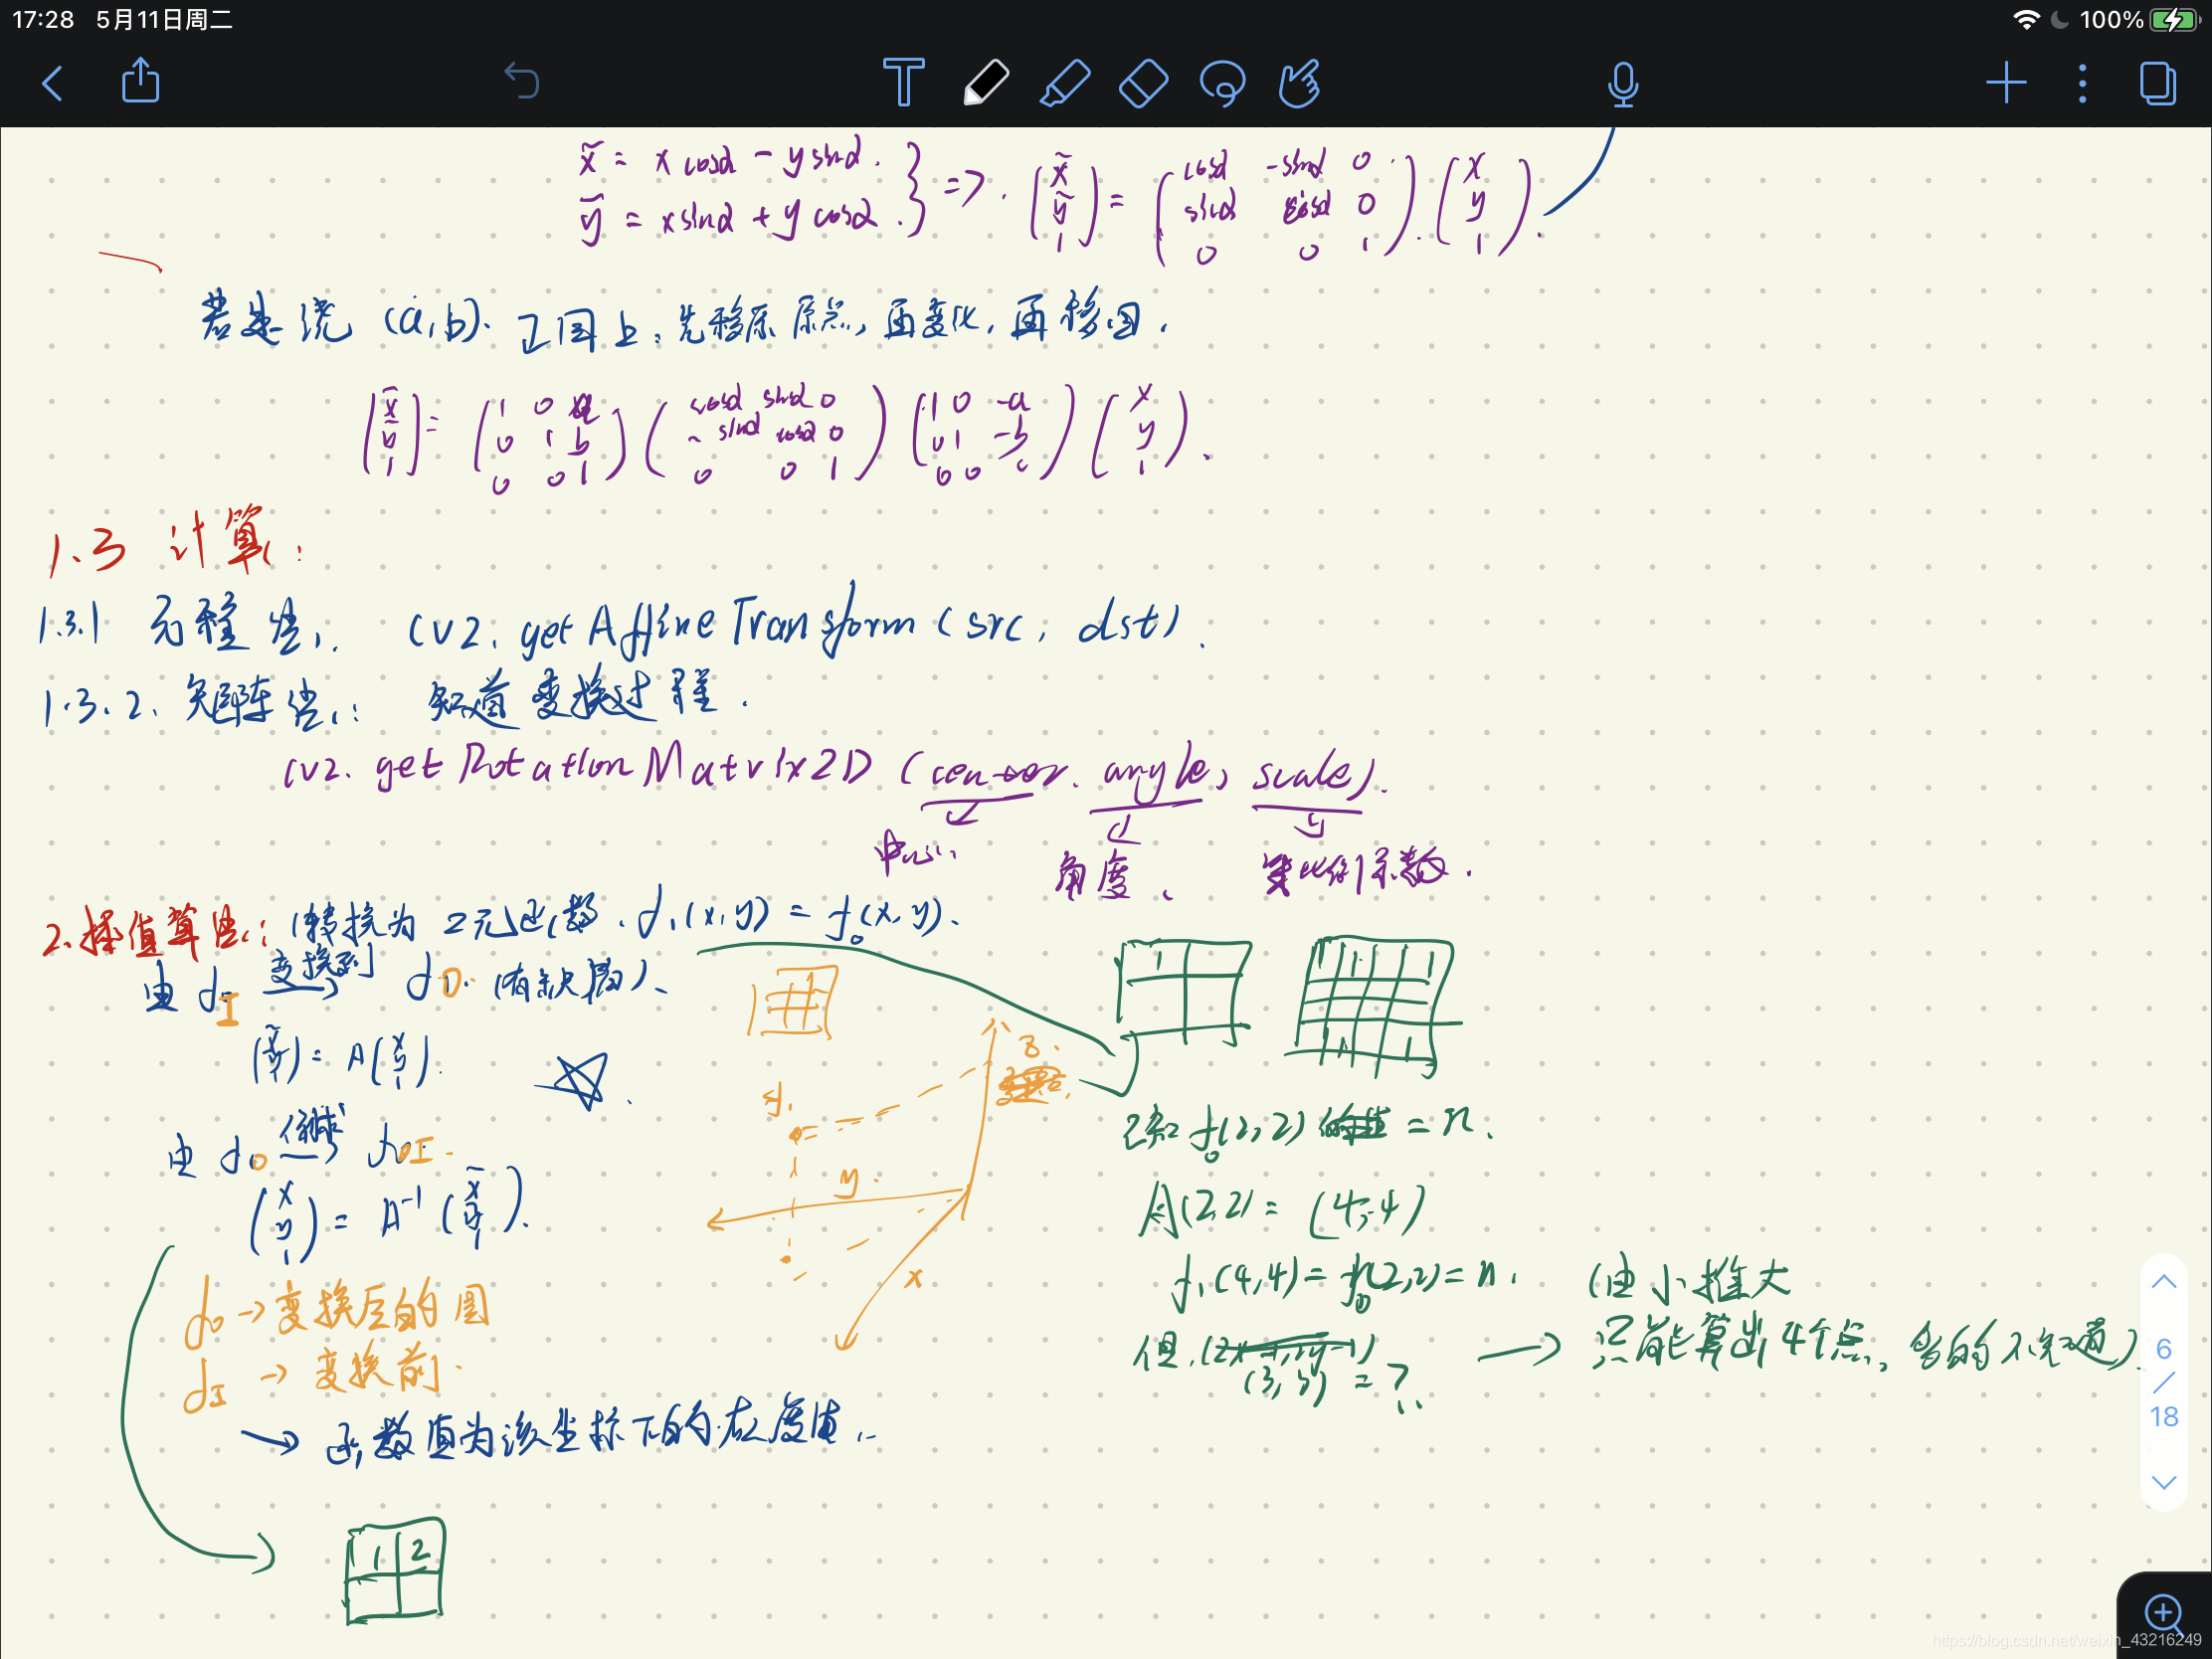 17:28 5月11日周二 100%
x̃ = x cosα - y sinα.
ỹ = x sinα + y cosα.
} => (x̃ ỹ 1) = (cosα -sinα 0 sinα cosα 0 0 0 1) · (x y 1).
若是绕 (a,b). 正图上: 先移原 原点, 再变化, 再移回.
(x̃ ỹ 1) = (1 0 a 0 1 b 0 0 1) (cosα sinα 0 -sinα cosα 0 0 0 1) (1 0 -a 0 1 -b 0 0 1) (x y 1).
1.3 计算:
1.3.1 方程法: cv2.getAffineTransform(src, dst).
1.3.2. 矩阵法: 知道变换过程.
cv2.getRotationMatrix2D (center. angle, scale).
中心. 角度. 等比例系数.
2.插值算法: (转换为 2元函数. f₁(x,y) = f₀(x,y).
由 f I 变换到 f O. (有缺陷).
(x̃ ỹ 1) = A (x y 1).
由 f O f I.
(x y 1) = A⁻¹ (x̃ ỹ 1).
f O -> 变换后的图
f I -> 变换前.
-> 函数值为该坐标下的灰度值.
1 2
f₁
y.
x
z.
1
已知 f₀(2,2) = n.
A(2,2) = (4,4)
f₁(4,4) = f₀(2,2) = n. (由小推大
但 (3,3) = ? -> 只能算出4个点,
6
/
18
https://blog.csdn.net/weixin_43216249